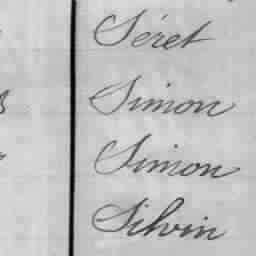 Séret
Simon
Simon
Silvin